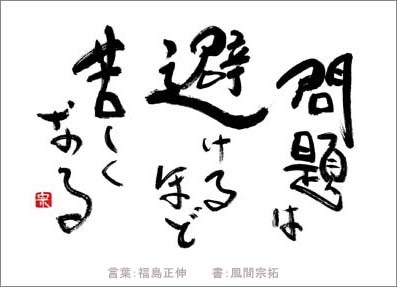 問題は
避けるほど
苦しく
なる
言葉:福島正伸 書:風間宗拓